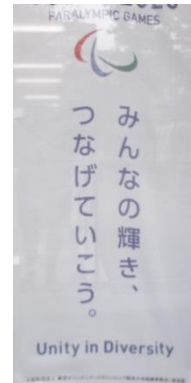 PARALYMPIC GAMES
みんなの輝き、
つなげていこう。
Unity in Diversity